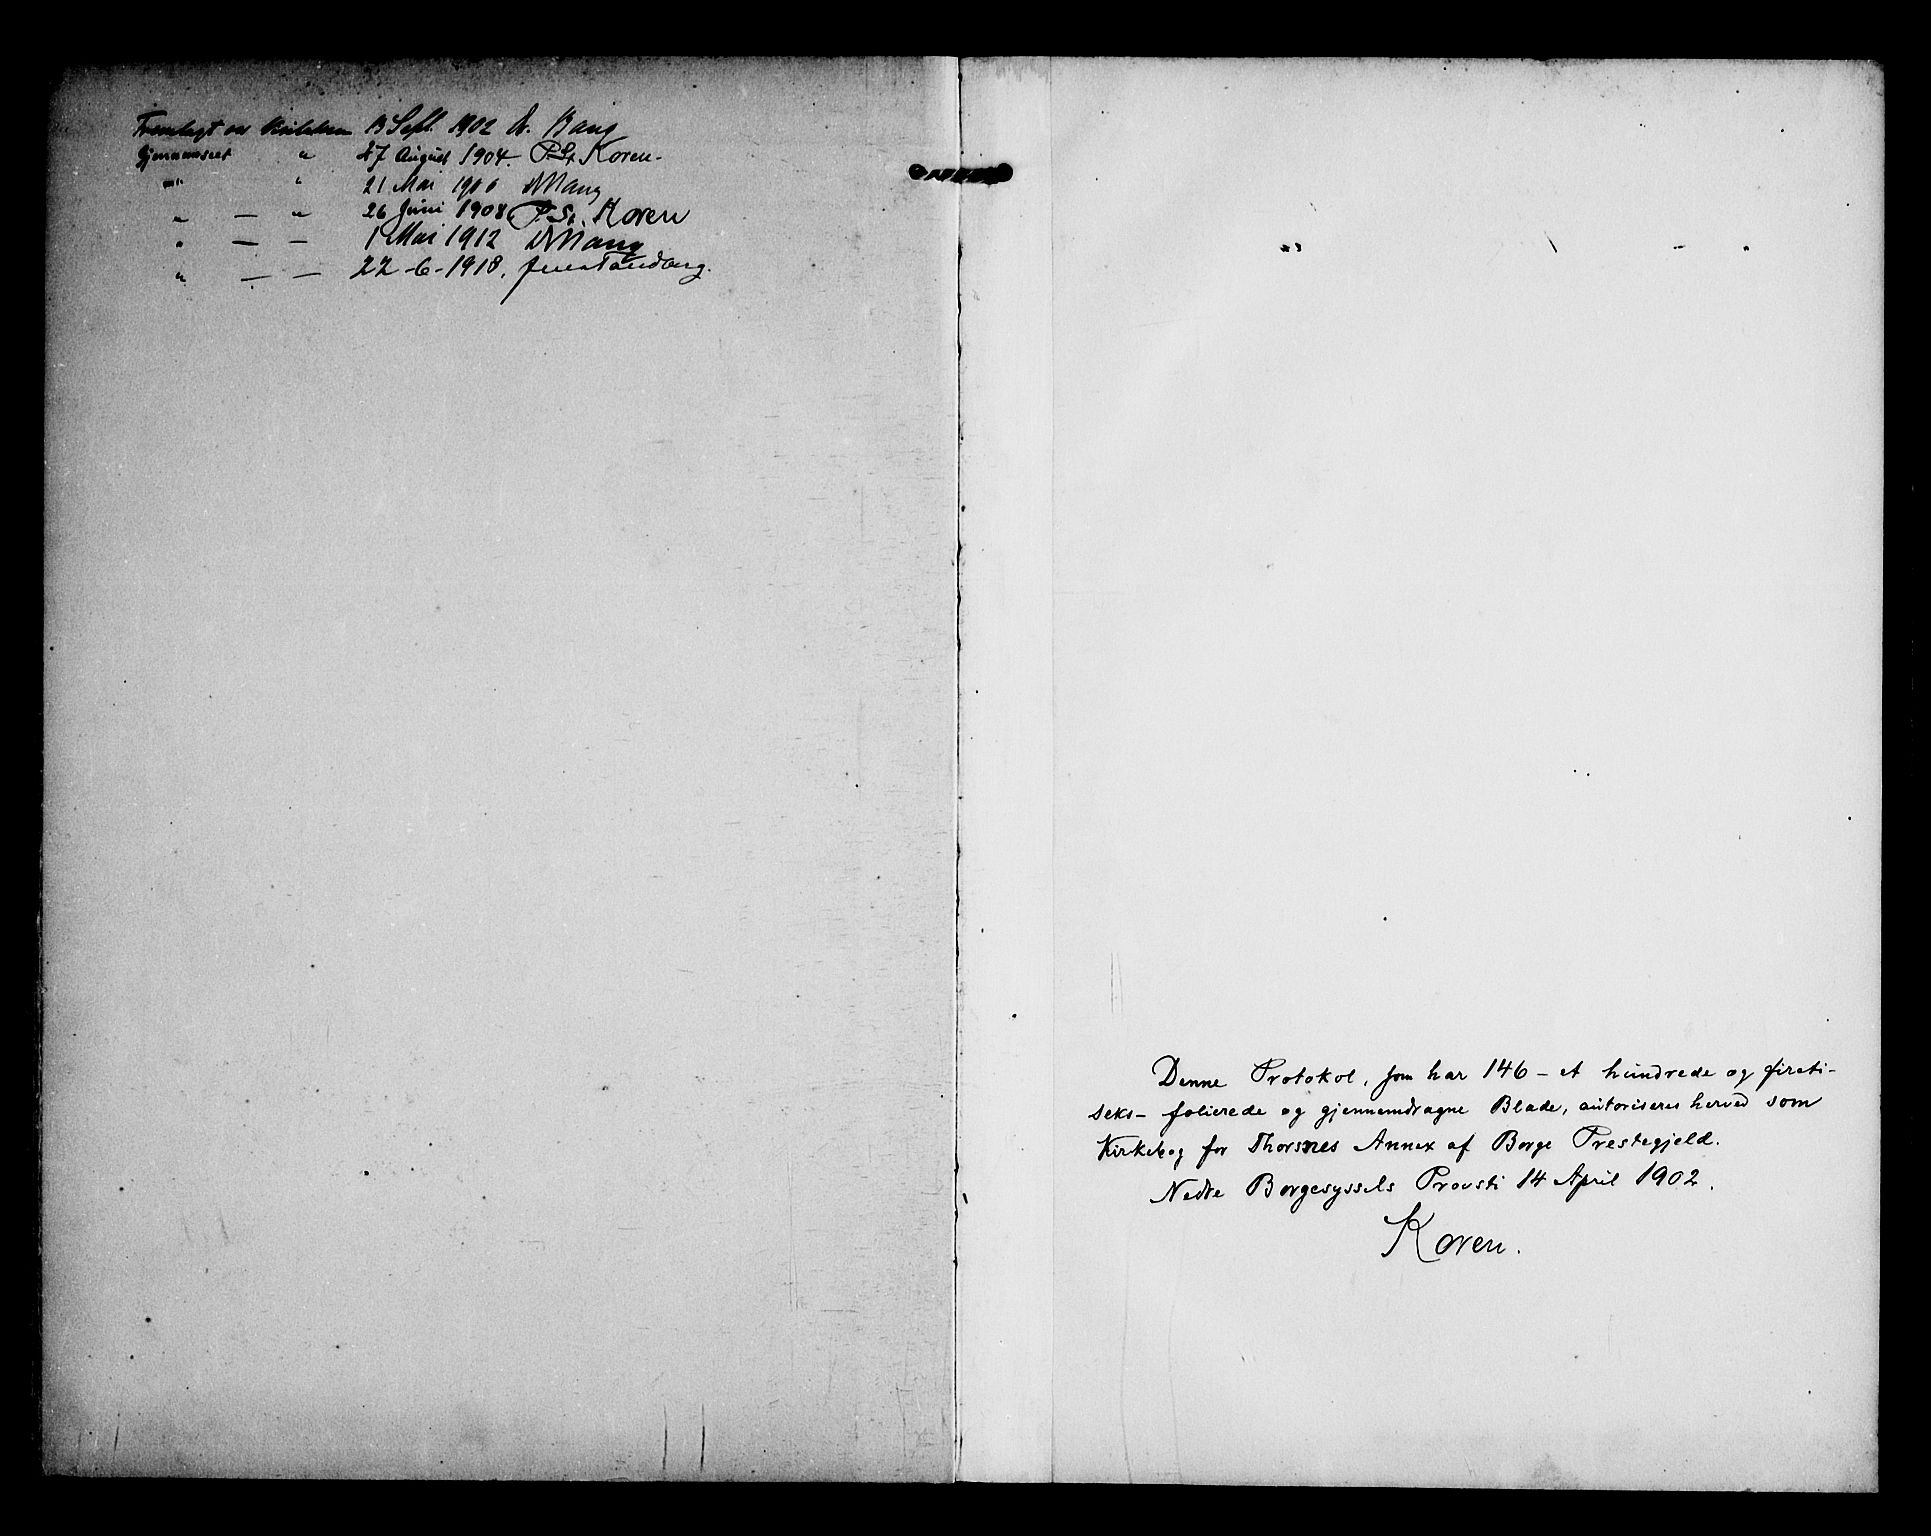 Fremlagt ved Visitatsen 13 Sept. 1902 A. Bang
Gjennemseet " 27 August 1904. P. St. Koren.
" " 21 Mai 1906 A Bang
" — " 26 Juni 1908 P. St. Koren
" — — 1 Mai 1912 A Bang
" — — 22-6-1918, Jens Tandberg.
Denne Protokol, som har 146 - et hundrede og fireti-
seks - folierede og gjennemdragne Blade, autoriseres herved som
Kirkebog for Thorsnes Annex af Borge Prestegjeld.
Nedre Borgesyssels Provsti 14 April 1902.
Koren.